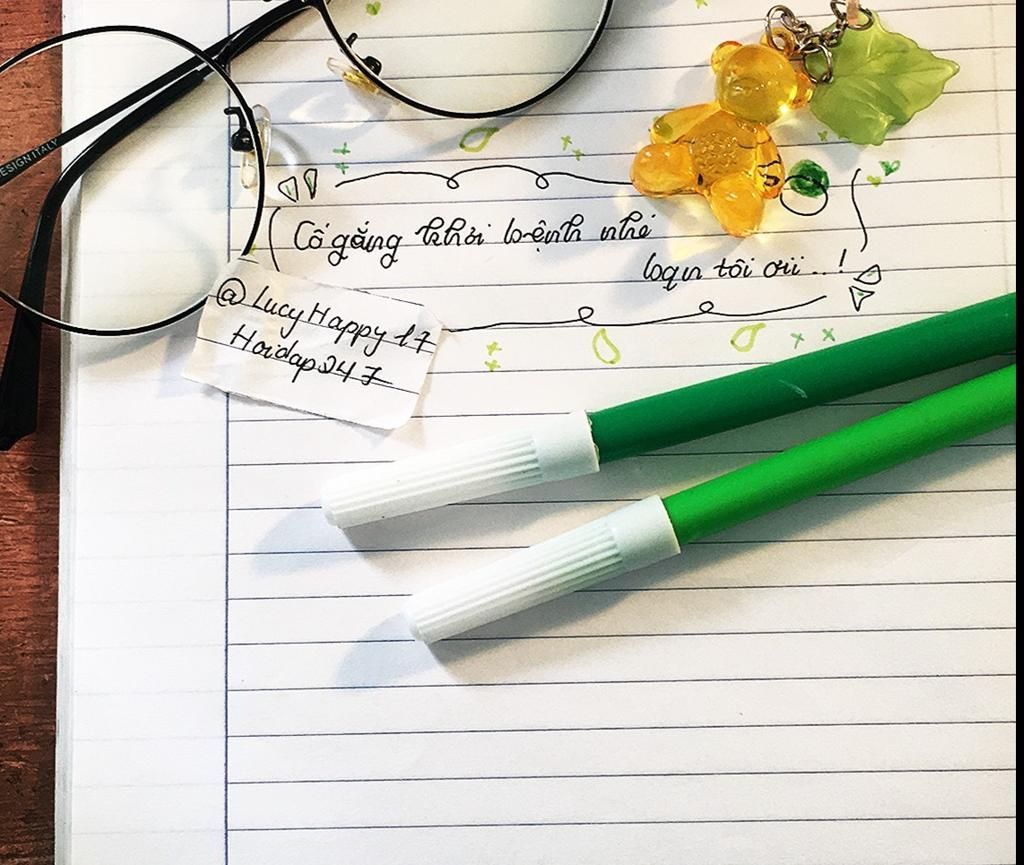 DESIGN ITALY
Cố gắng khỏi bệnh nhé
bạn tôi ơii...!
@LucyHappy17
Hoidap247